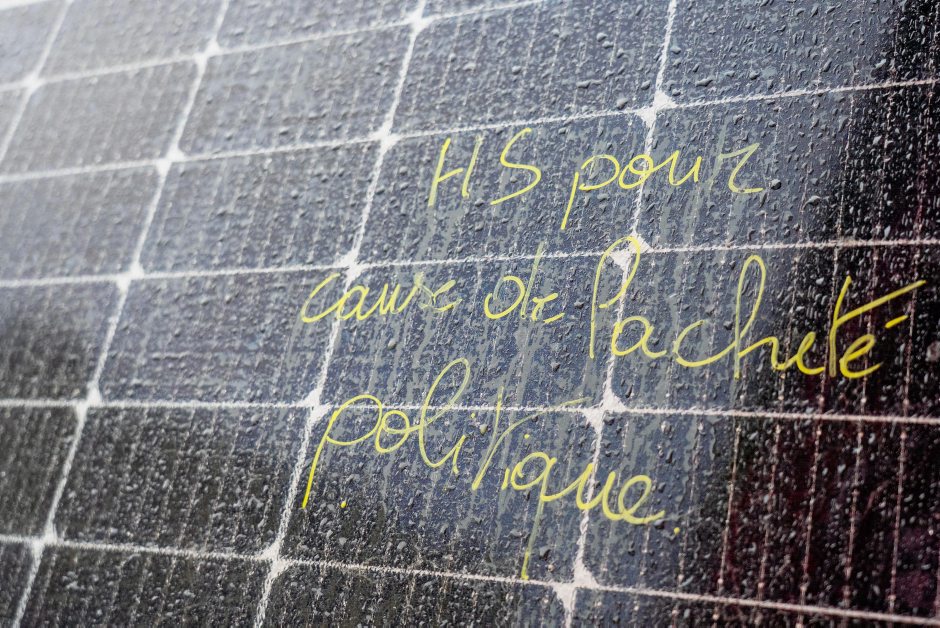 HS pour
cause de Lacheté
politique.